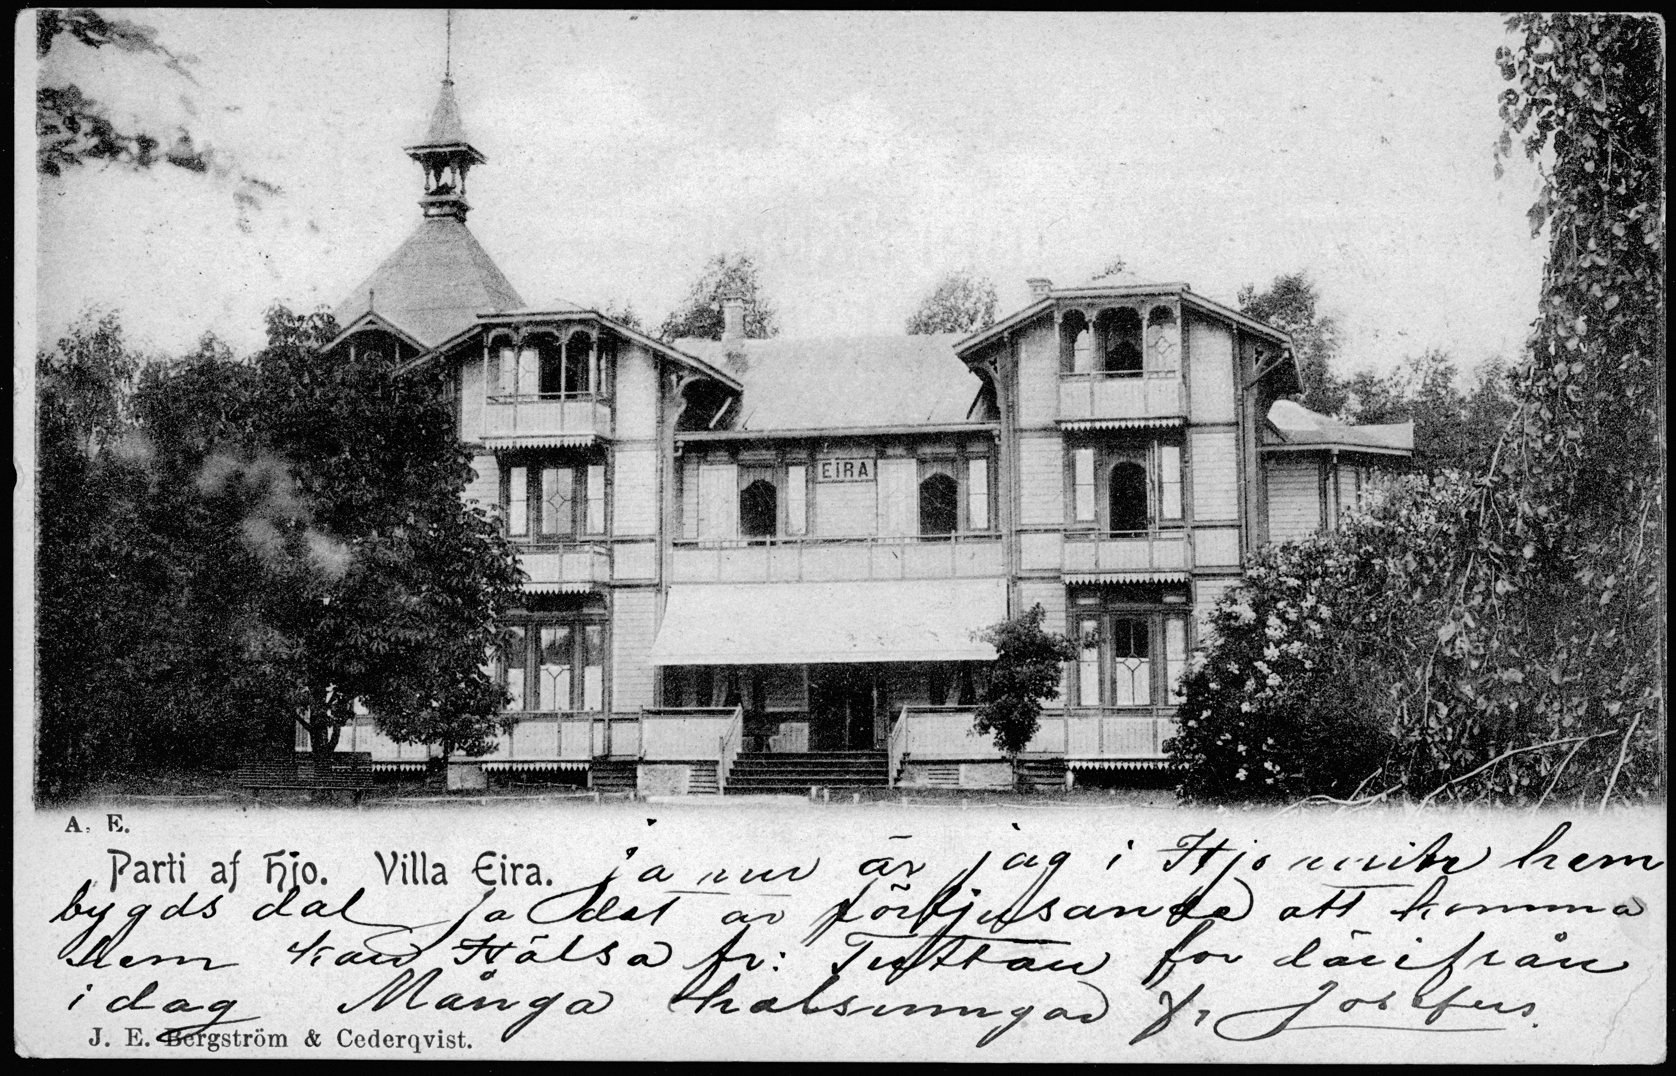 EIRA
A. E.
Parti af Hjo. Villa Eira.
ja nu är jag i Hjo min hem
bygds dal ja det är förtjusande att komma
hem kan Hälsa fr: Tuttan for därifrån
i dag Många halsningar Josefus.
J. E. Bergström & Cederqvist.